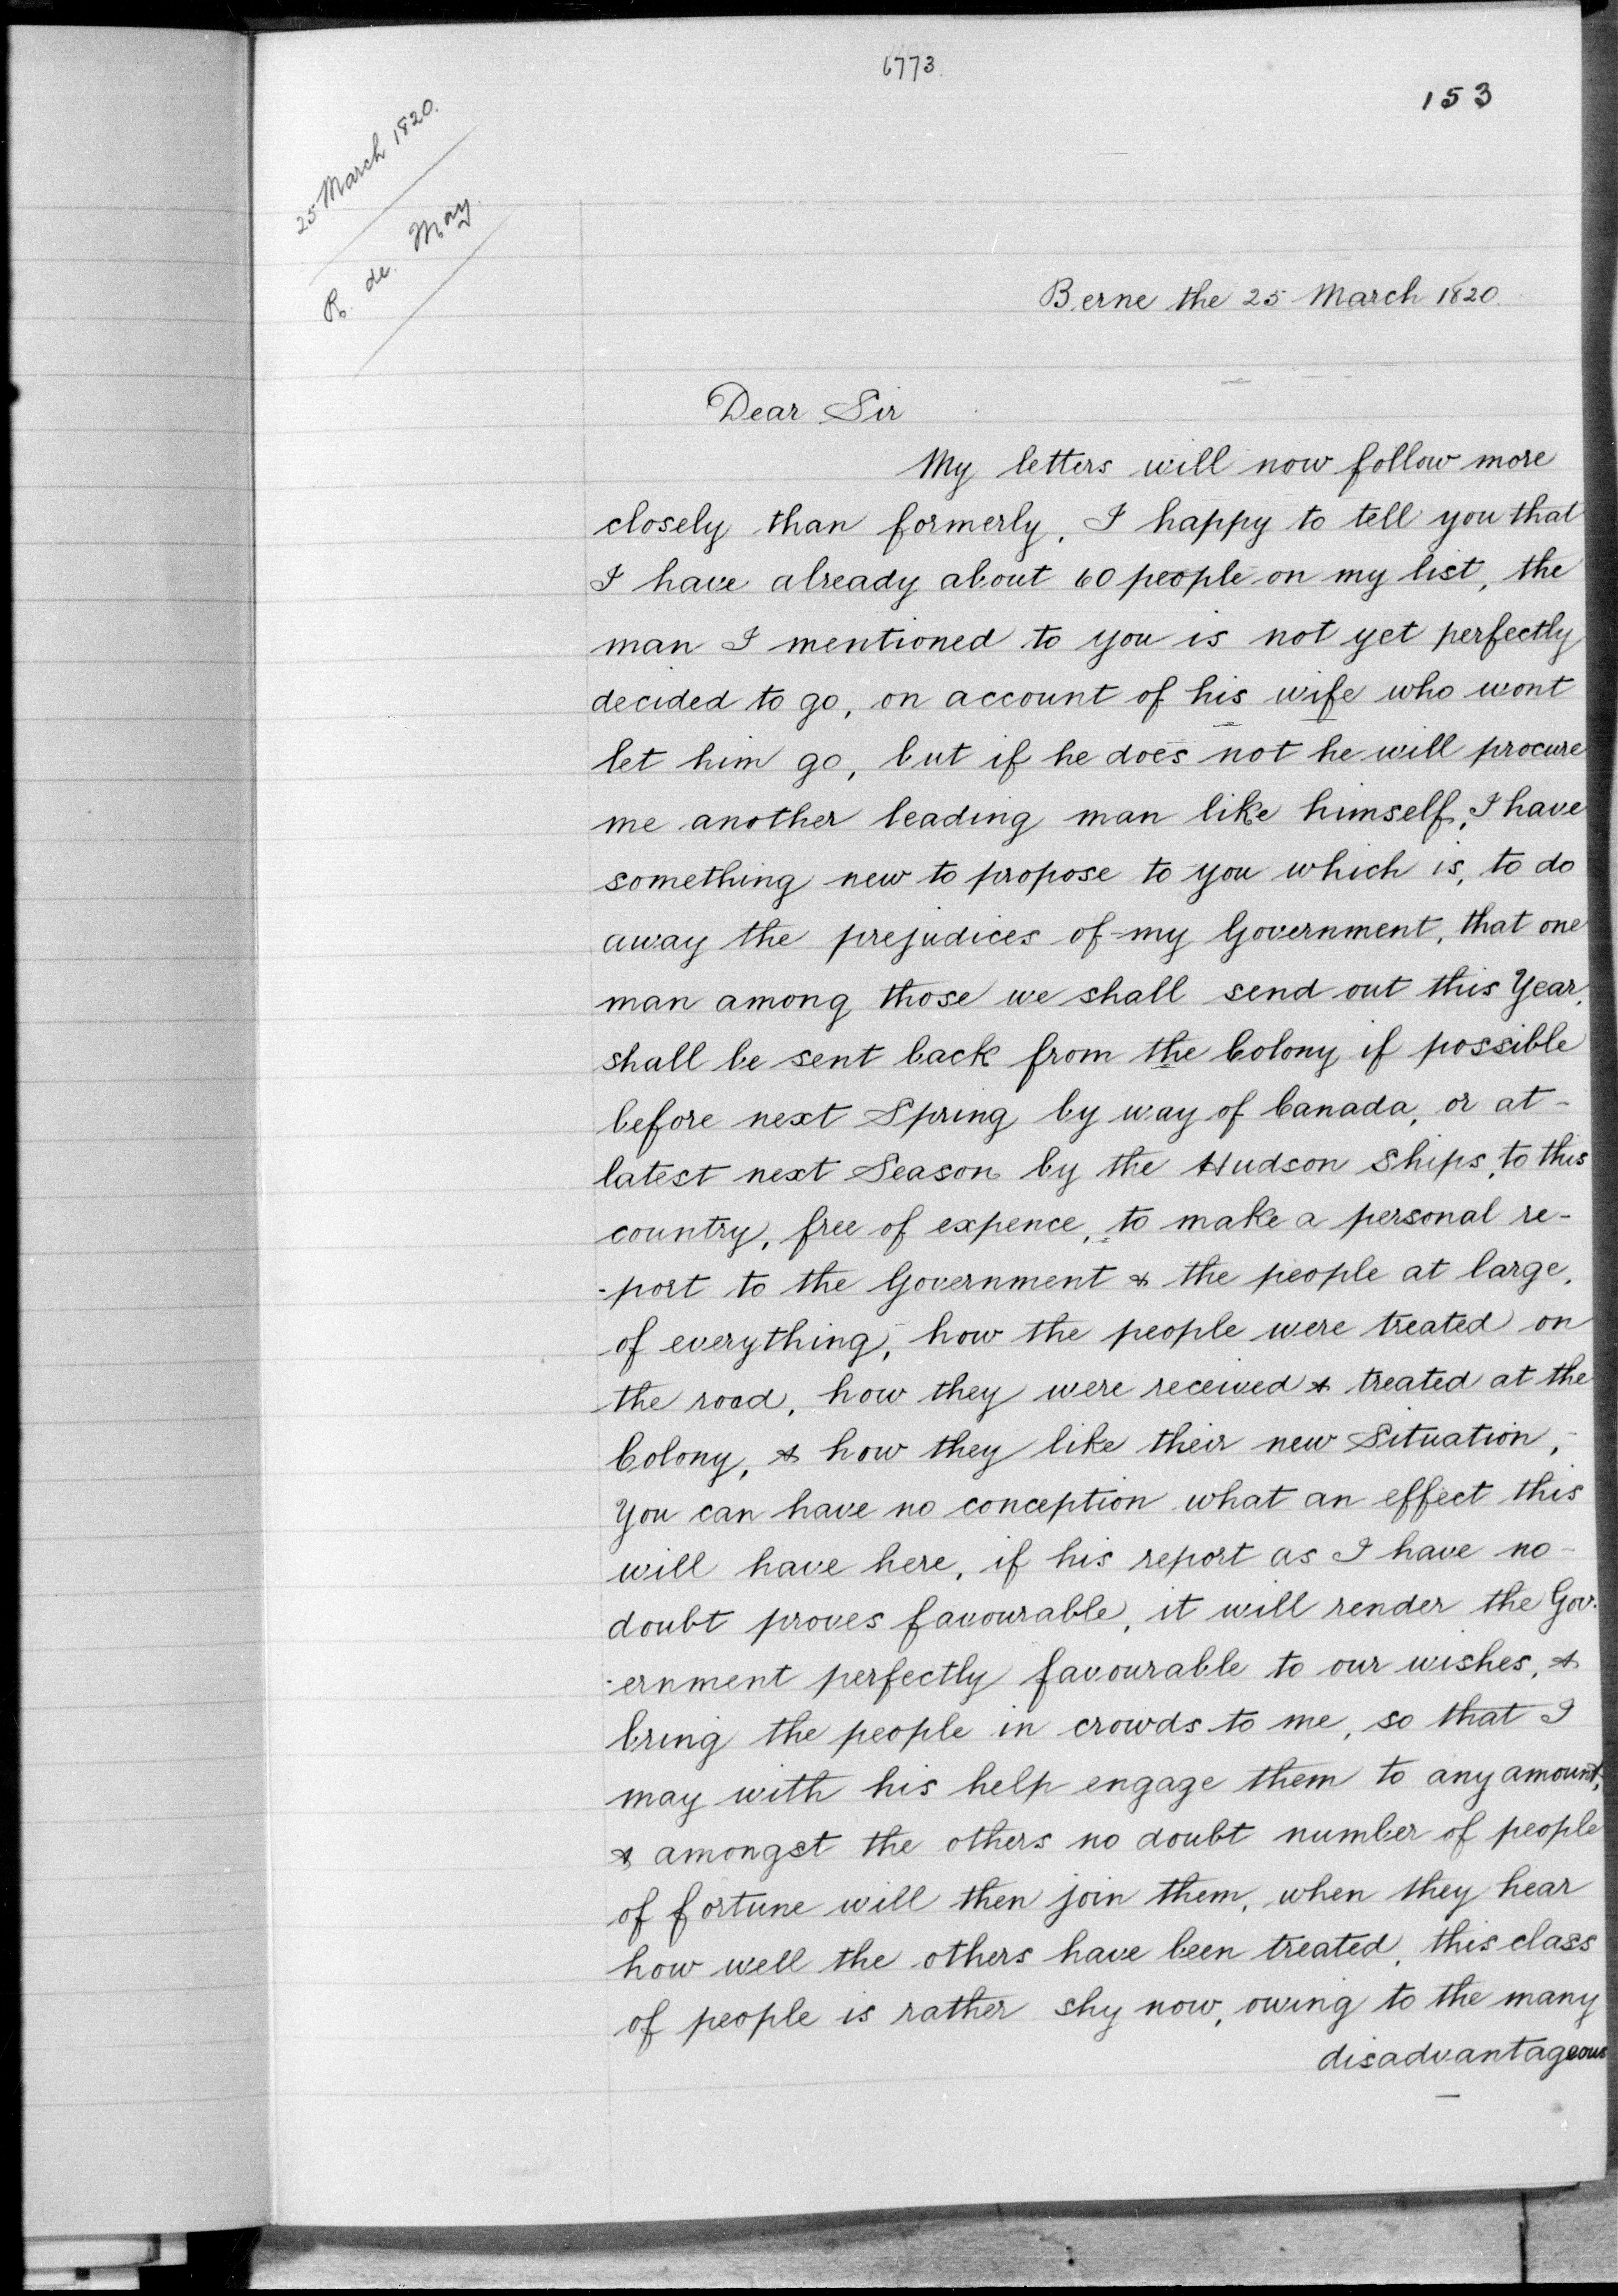 6773
153
25 March 1820.
R. de. May.
Berne the 25 March 1820.
Dear Sir
My letters will now follow more
closely than formerly, I happy to tell you that
I have already about 60 people on my list, the
man I mentioned to you is not yet perfectly
decided to go, on account of his wife who wont
let him go, but if he does not he will procure
me another leading man like himself, I have
something new to propose to you which is, to do
away the prejudices of my Government, that one
man among those we shall send out this Year,
shall be sent back from the Colony if possible
before next Spring by way of Canada, or at-
latest next Season by the Hudson Ships, to this
country, free of expence, to make a personal re-
-port to the Government & the people at large,
of everything, how the people were treated on
the road, how they were received & treated at the
Colony, & how they like their new Situation,-
You can have no conception what an effect this
will have here, if his report as I have no-
doubt proves favourable, it will render the Gov-
-ernment perfectly favourable to our wishes, &
bring the people in crowds to me, so that I
may with his help engage them to any amount,
& amongst the others no doubt number of people
of fortune will then join them, when they hear
how well the others have been treated, this class
of people is rather shy now, owing to the many
disadvantageous